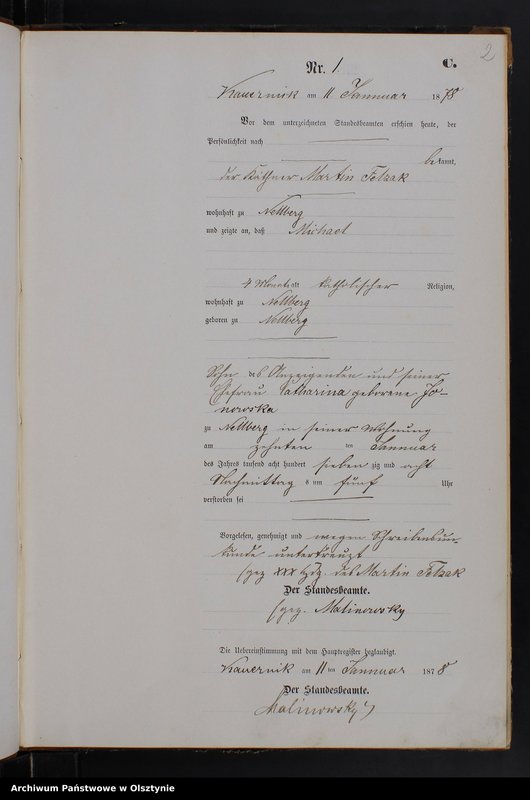 2
Nr. 1
C.
Kauernik am 11 Januar 1878
Vor dem unterzeichneten Standesbeamten erschien heute, der
Persönlichkeit nach
bekannt,
der Käthner Martin Felzak
wohnhaft zu Nellberg
und zeigte an, daß Michael
4 Monate alt katholischer Religion,
wohnhaft zu Nellberg
geboren zu Nellberg
Sohn des Anzeigenden und seiner
Ehefrau Catharina geborene Jo-
nowska
zu Nellberg in seiner Wohnung
am zehnten ten Januar
des Jahres tausend acht hundert sieben zig und acht
Nachmittag s um fünf Uhr
verstorben sei
Vorgelesen, genehmigt und wegen Schreibensun-
kunde unterkreuzt
(gez xxx Hdz. des Martin Felzak
Der Standesbeamte.
(gez. Malinowsky
Die Uebereinstimmung mit dem Hauptregister beglaubigt.
Kauernik am 11 ten Januar 1878
Der Standesbeamte.
Malinowsky
Archiwum Państwowe w Olsztynie